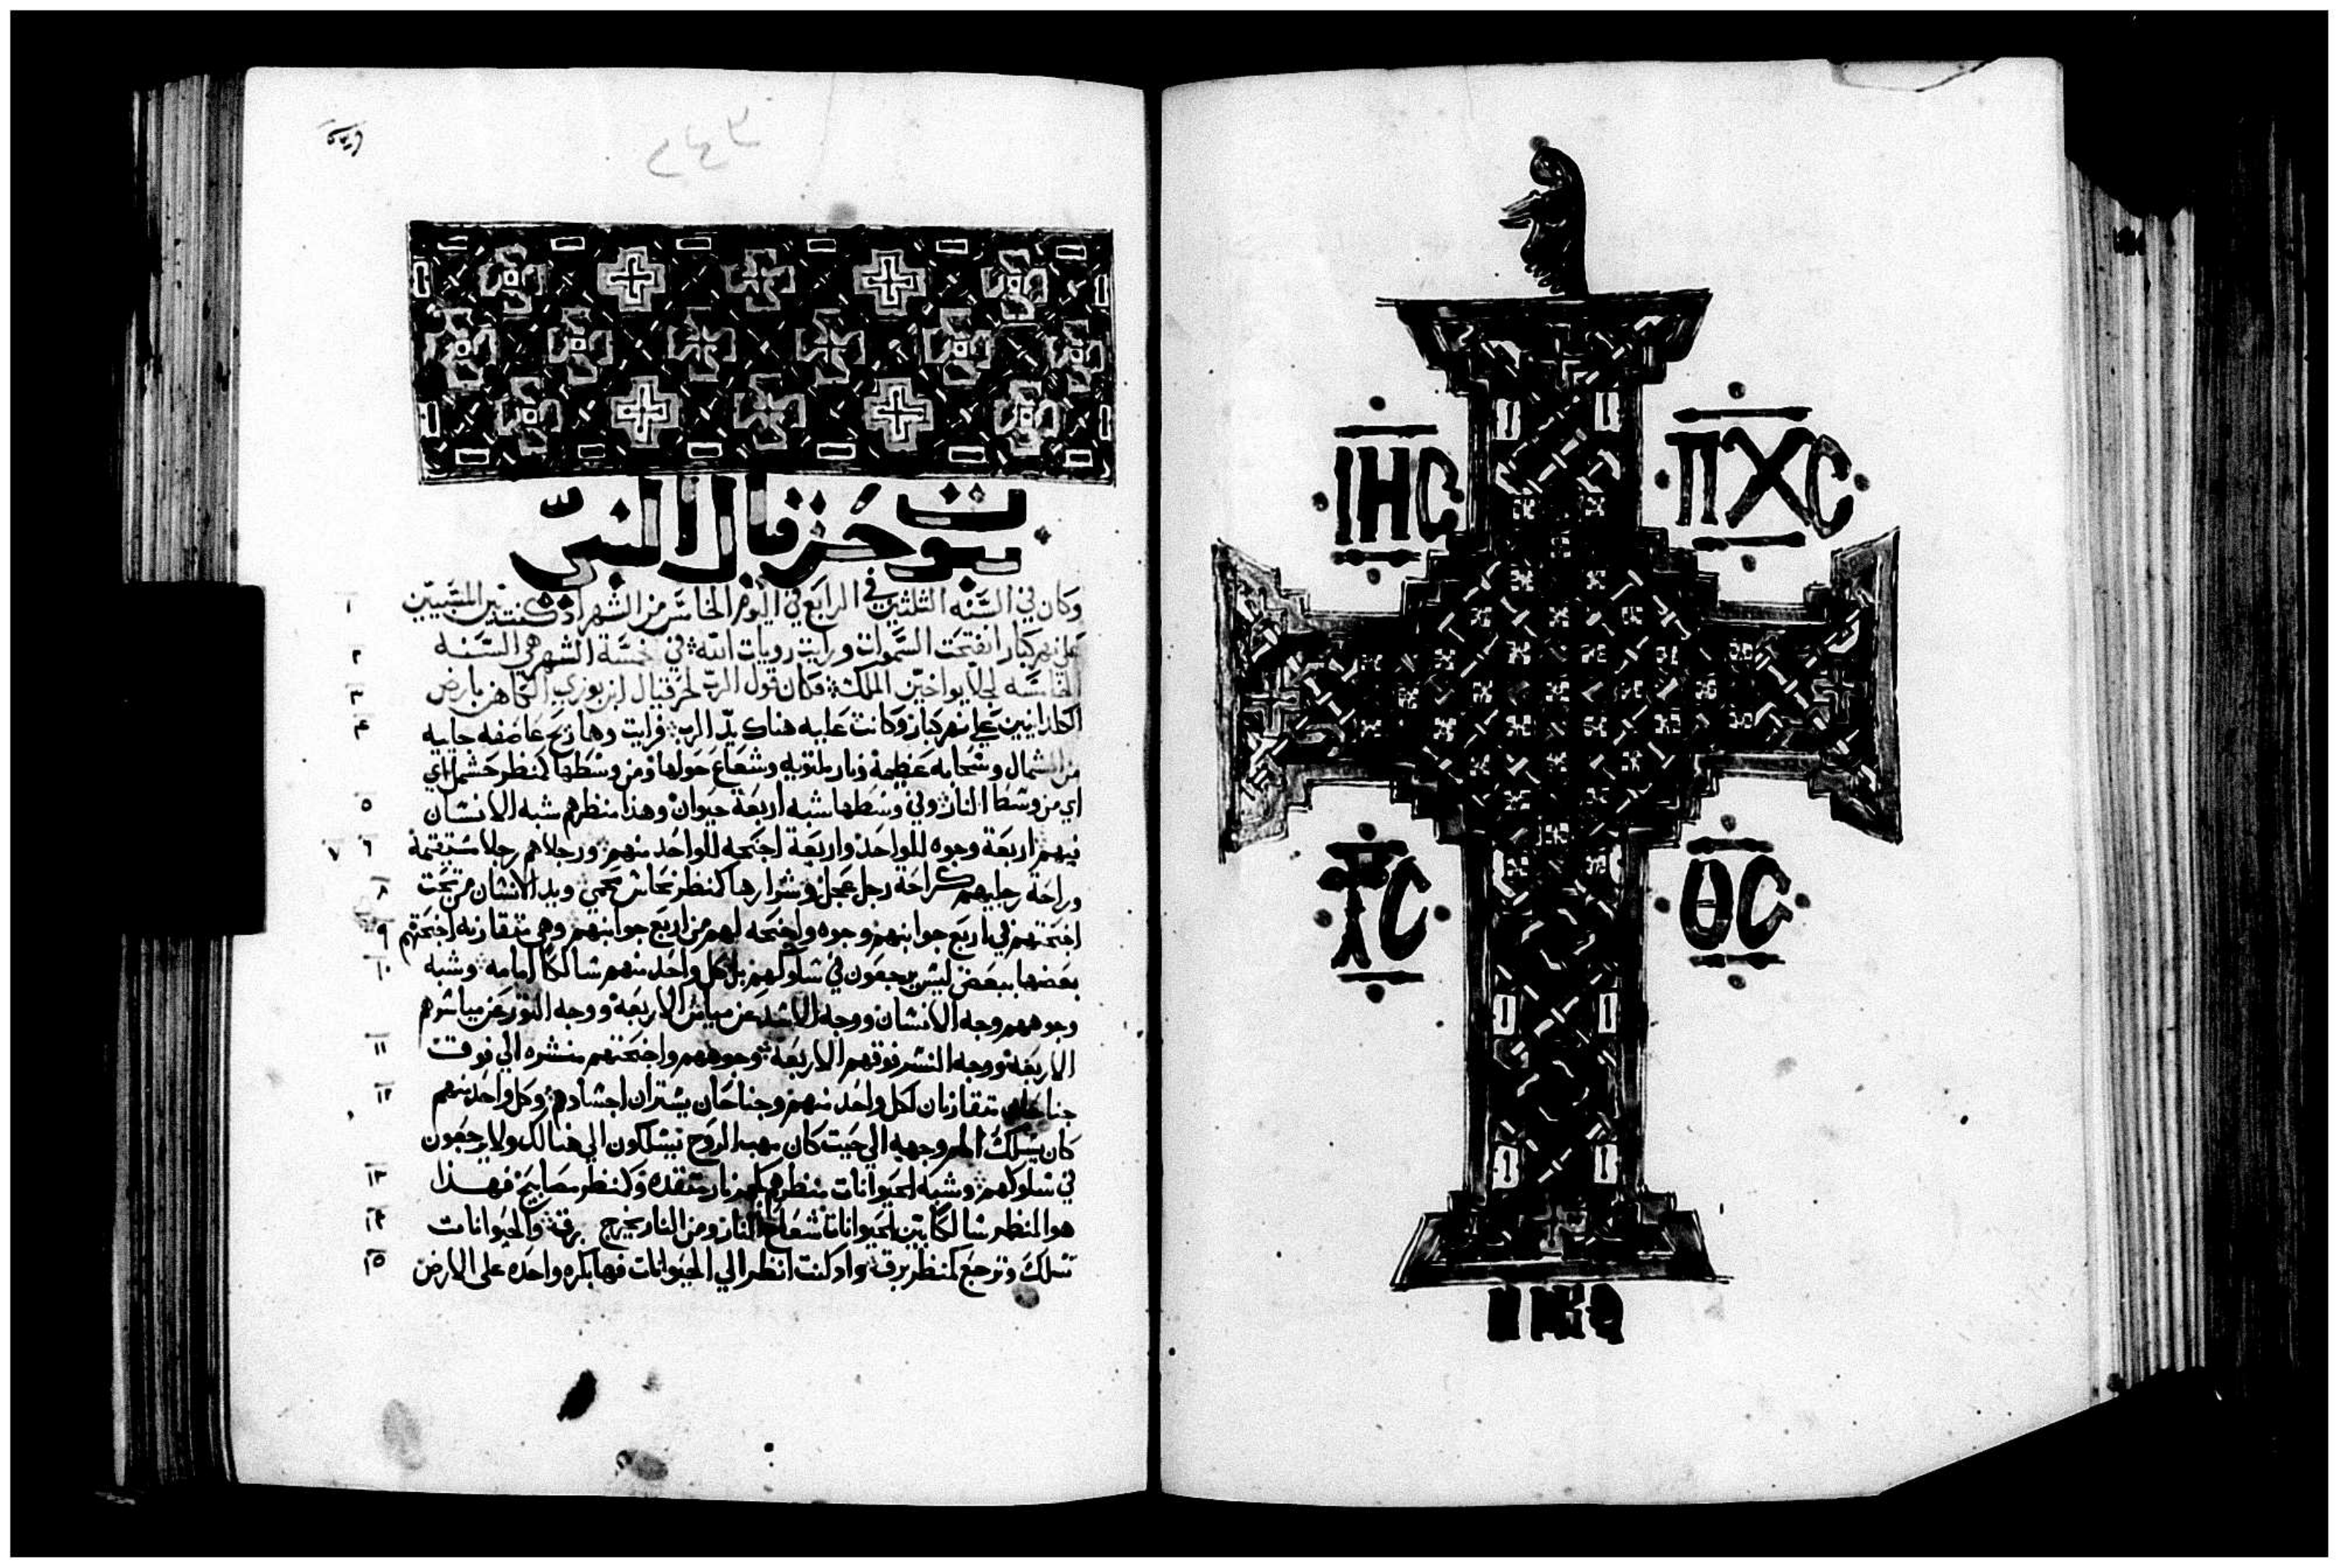 نبوة حزقيال النبي
وكان في السنه الثلثين في الرابع في اليوم الخامس من الشهر اذ كنت بين المسبيين ١
على نهر كبار انفتحت السموات ورايت رويات الله في خمسة الشهر هي السنه ٢
الخامسه لجلا يواخين الملك فكان قول الرب لحزقيال ابن بوزي الكاهن بارض ٣
الكلدانيين على نهر كبار وكانت عليه هناك يد الرب فرايت وها ريح عاصفه جايه ٤
من الشمال وسحابه عظيمة ونار ملتويه وشعاع حولها ومن وسطها كمنظر حشملاي
اي من وسط النار وفي وسطها شبه اربعة حيوان وهذا منظرهم شبه الانسان ٥
فيهم اربعة وجوه للواحد واربعة اجنحه للواحد منهم ورجلاهم رجلا مستقيمة ٦ ٧
وراحة رجليهم كراحة رجل عجل وشرارها كمنظر نحاش محمي ويد الانسان من تحت ٨
اجنحتهم في اربع جوانبهم وجوه واجنحه لهم من اربع جوانبهم وهي متقارنه اجنحتهم ٩
بعضها ببعض ليس يرجعون في سلوكهم بل كل واحد منهم سالكا امامه وشبه ١٠
وجوههم وجه الانسان ووجه الاسد عن ميامن الاربعة ووجه الثور عن مياسرهم
الاربعة ووجه النسر فوقهم الاربعة وجوههم واجنحتهم منشره الي فوق ١١
جناحان متقارنان لكل واحد منهم وجناحان يستران اجسادهم وكل واحد منهم ١٢
كان يسلك امام وجهه الي حيت كان مهب الروح يسلكون الي هنالك ولا يرجعون
في سلوكهم وشبه الحيوانات منظرهم كجمر نار متقده وكمنظر مصابيح فهذا ١٣
هو المنظر سالكا بين الحيوانات شعاع النار ومن النار يخرج برق والحيوانات ١٤
تسلك وترجع كمنظر برق واذ كنت انظر الي الحيوانات فها بكره واحده على الارض ١٥
ΙΗС ΠΧС
ΥС ΘС